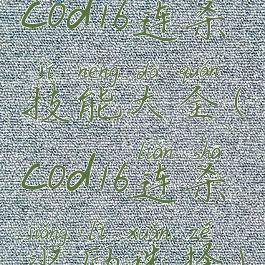 cod16连杀
jì néng dà quán
技能大全(
lián shā
cod16连杀
jiǎng lì xuǎn zé
奖励选择)